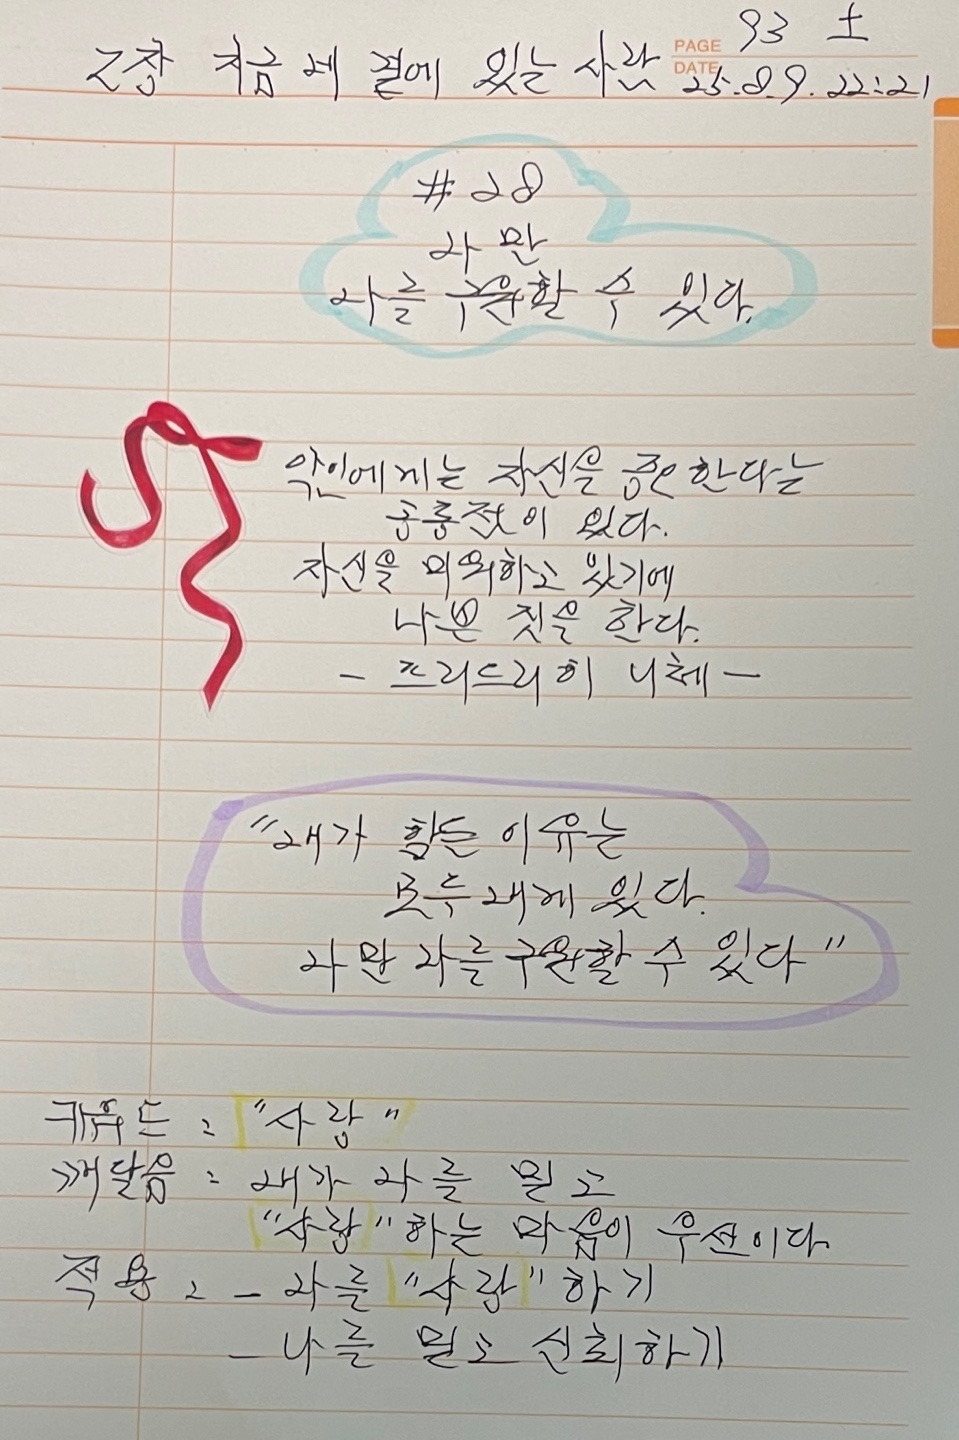 2장 지금 네 곁에 있는 사람
PAGE 93 土
DATE 25.8.9. 22:21
#28
나만
나를 구원할 수 있다.
악인에게는 자신을 증오한다는
공통점이 있다.
자신을 미워하고 있기에
나쁜 짓을 한다.
- 프리드리히 니체 -
"내가 힘든 이유는
모두 내게 있다.
나만 나를 구원할 수 있다"
키워드 : "사랑"
깨달음 : 내가 나를 믿고
"사랑"하는 마음이 우선이다.
적용 : - 나를 "사랑"하기
- 나를 믿고 신뢰하기